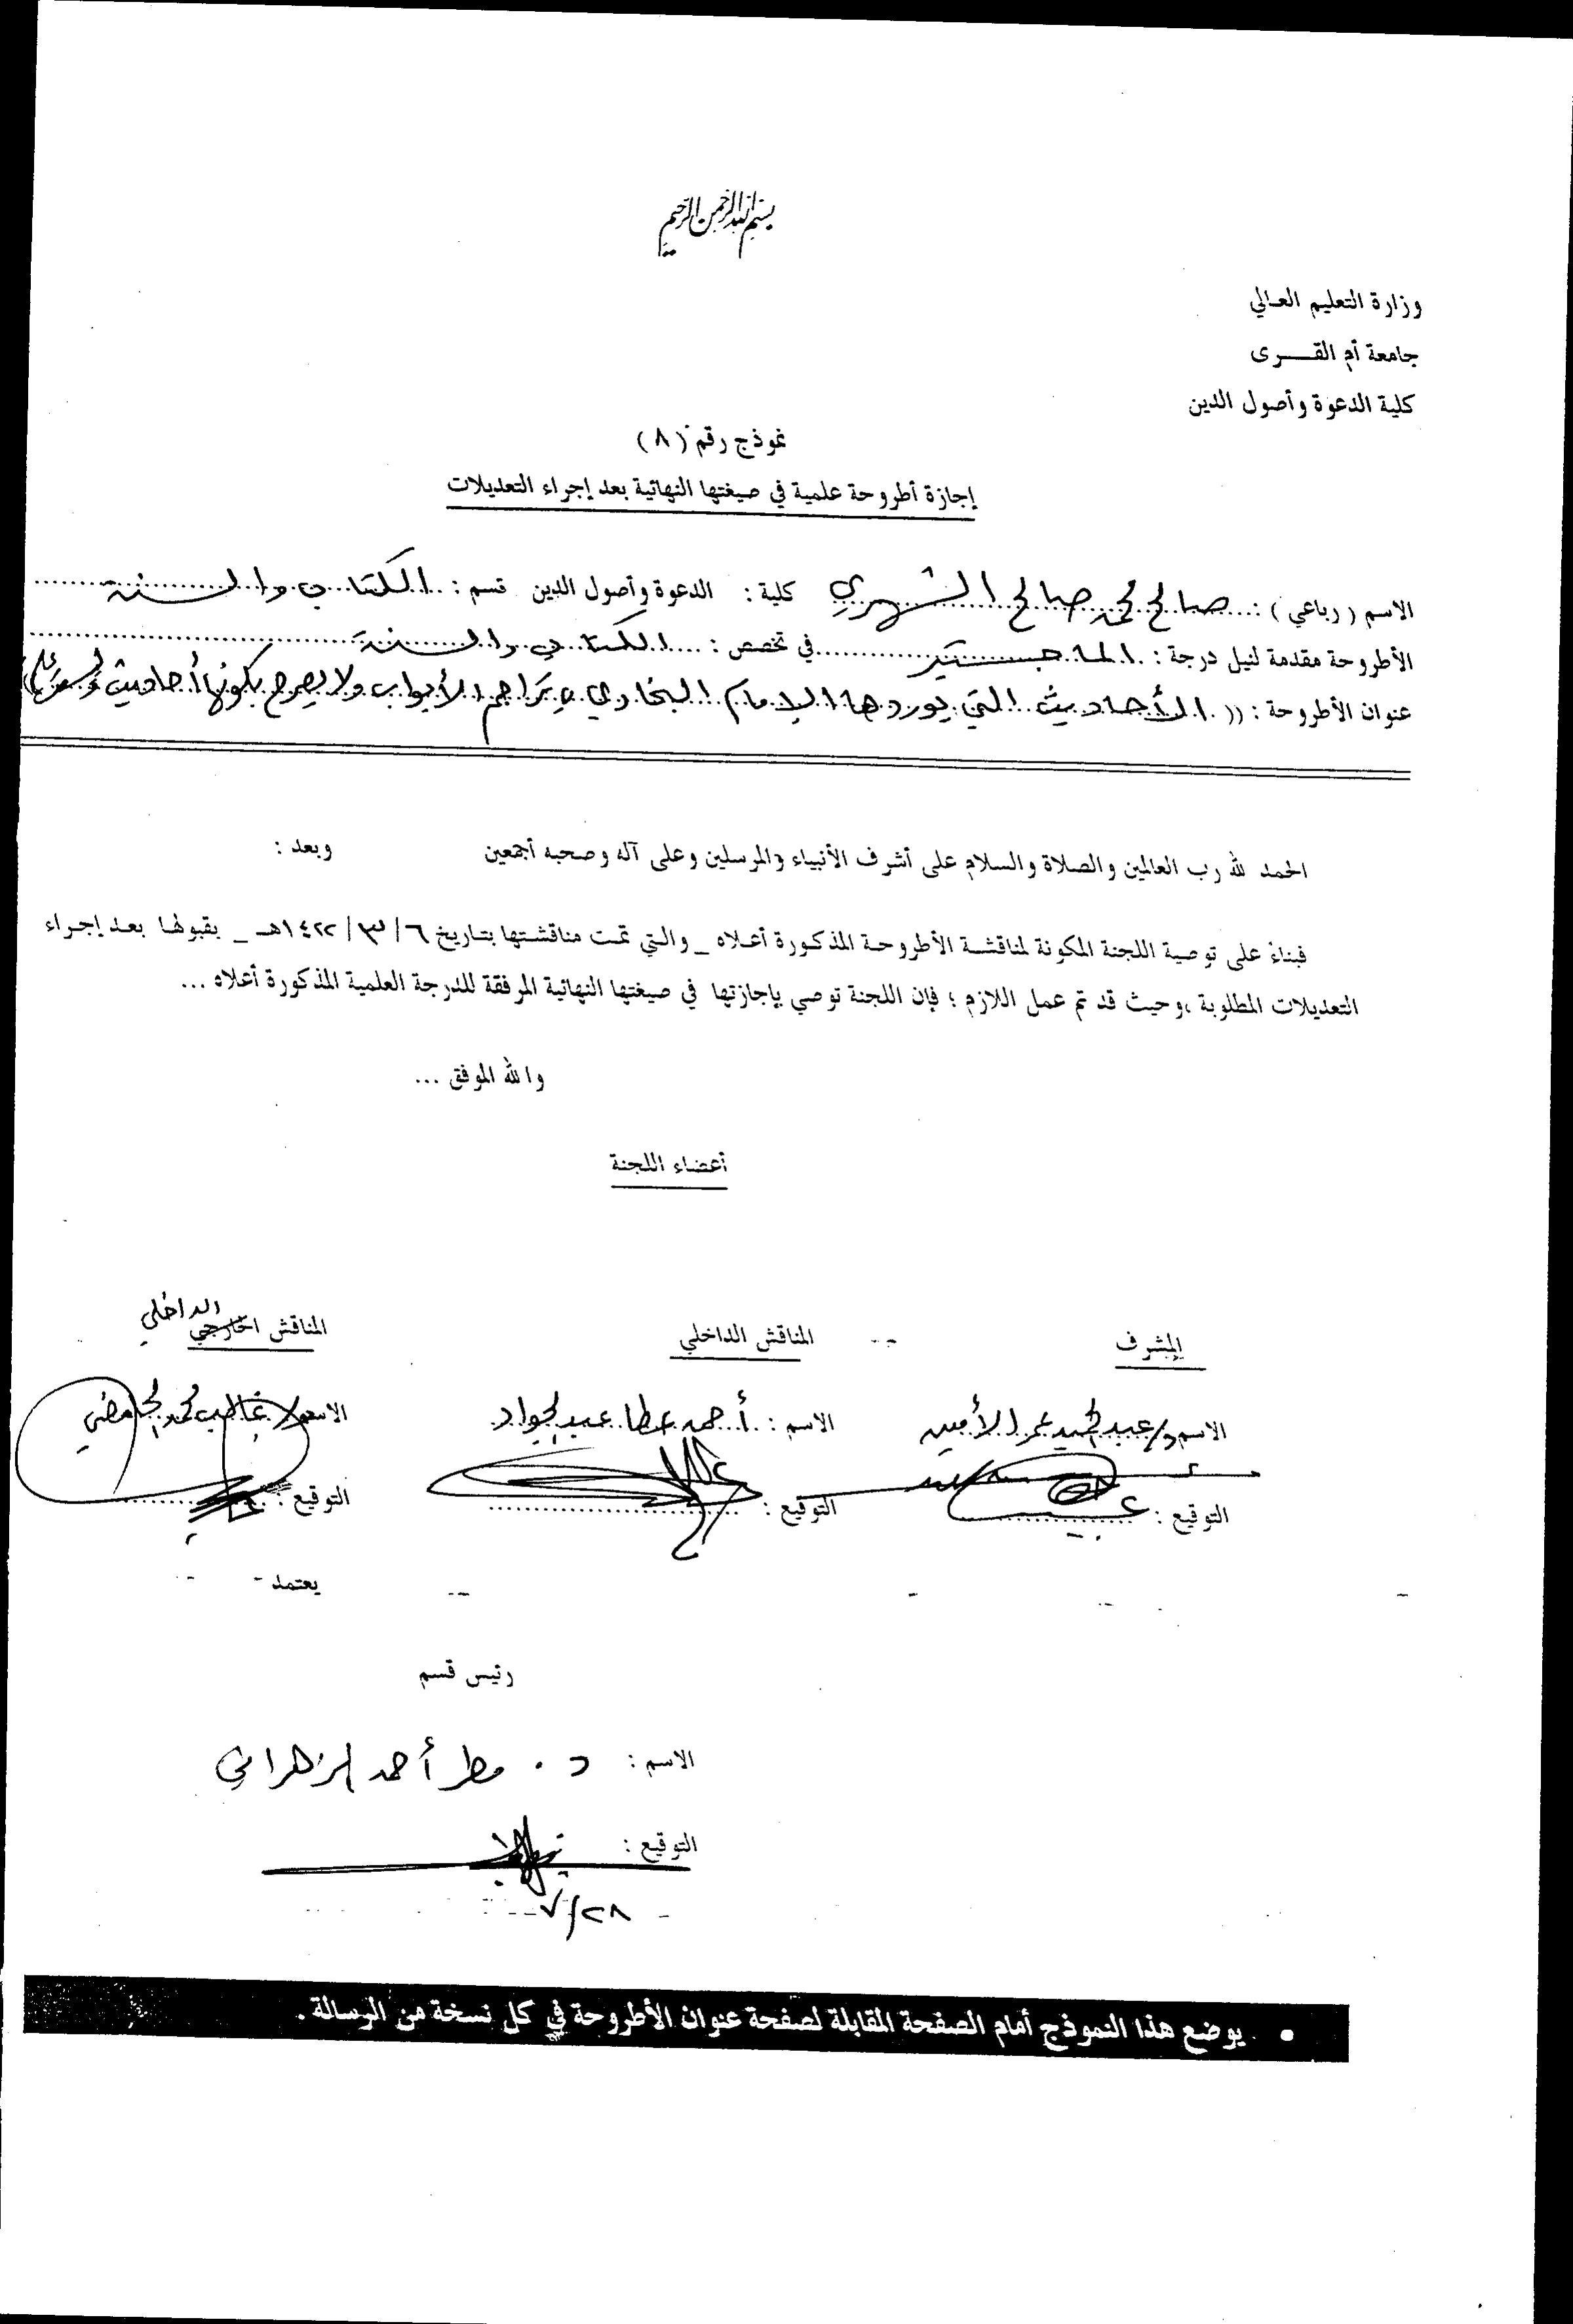 بسم الله الرحمن الرحيم
وزارة التعليم العالي
جامعة أم القـــرى
كلية الدعوة وأصول الدين
نموذج رقم (٨)
إجازة أطروحة علمية في صيغتها النهائية بعد إجراء التعديلات
الاسم ( رباعي ) : صالح محمد صالح الشهري كلية : الدعوة وأصول الدين قسم : الكتاب والسنة
الأطروحة مقدمة لنيل درجة : الماجستير في تخصص : الكتاب والسنة
عنوان الأطروحة : (( الأحاديث التي يوردها الإمام البخاري في تراجم الأبواب ولا يصرح بكونها أحاديث
الحمد لله رب العالمين والصلاة والسلام على أشرف الأنبياء والمرسلين وعلى آله وصحبه أجمعين وبعد :
فبناءً على توصية اللجنة المكونة لمناقشة الأطروحة المذكورة أعلاه _ والتي تمت مناقشتها بتاريخ ٦ / ٣ / ١٤٢٢هـ _ بقبولها بعد إجراء
التعديلات المطلوبة ،وحيث قد تم عمل اللازم ؛ فإن اللجنة توصي بإجازتها في صيغتها النهائية المرفقة للدرجة العلمية المذكورة أعلاه ...
والله الموفق ...
أعضاء اللجنة
المشرف المناقش الداخلي المناقش الخارجي الداخلي
الاسم د/ عبد الحميد عمر الأمين الاسم : أحمد عطا عبد الجواد الاسم د/ غالب محمد الحامضي
التوقيع : التوقيع : التوقيع :
يعتمد
رئيس قسم
الاسم : د . مطر أحمد الزهراني
التوقيع :
٢٨/٧
• يوضع هذا النموذج أمام الصفحة المقابلة لصفحة عنوان الأطروحة في كل نسخة من الرسالة .